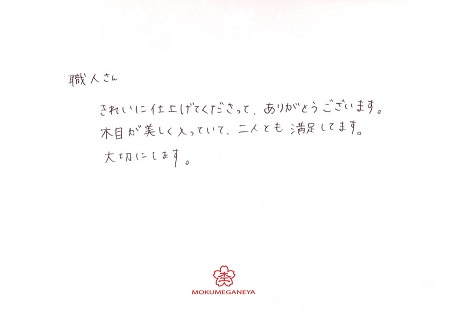 職人さん
きれいに仕上げてくださって、ありがとうございます。
木目が美しく入っていて、二人とも満足してます。
大切にします。
杢
MOKUMEGANEYA